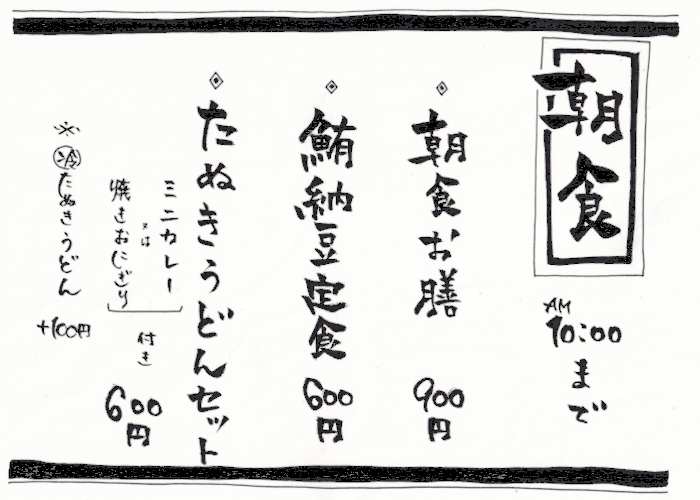 朝食
AM
10:00まで
朝食お膳 900円
鮪納豆定食 600円
たぬきうどんセット
ミニカレー
又は
焼きおにぎり
付き
600円
※冷たぬきうどん
+100円